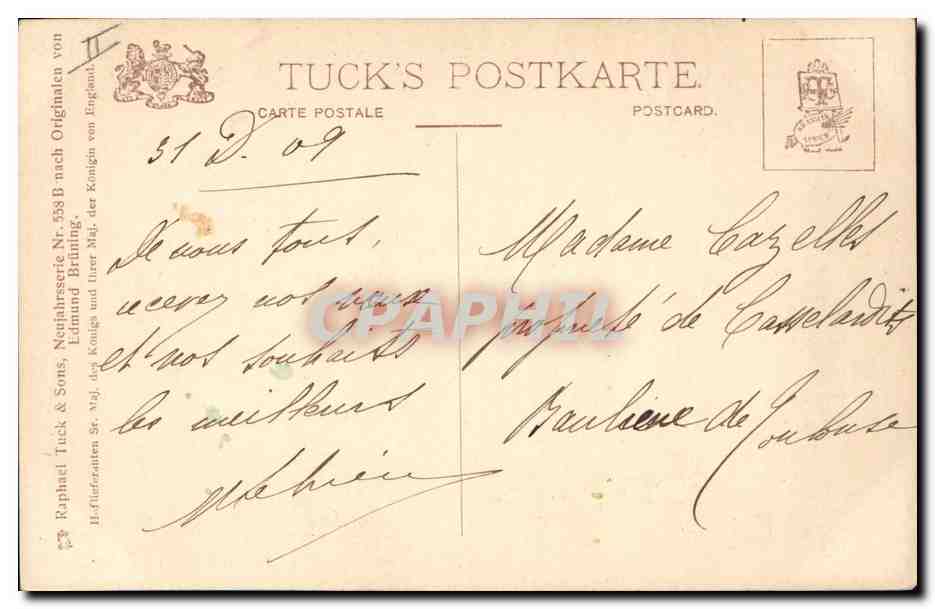 II
TUCK'S POSTKARTE.
CARTE POSTALE
POSTCARD.
Raphael Tuck & Sons, Neujahrsserie Nr. 558 B nach Originalen von
Edmund Brüning.
Hoflieferanten Sr. Maj. des Königs und Ihrer Maj. der Königin von England.
31 D. 09
De nous tous,
recevez nos vœux
et nos souhaits
les meilleurs
Madame Cazelles
propriété de Casselardits
Banlieue de Toulouse
CPAPHIL